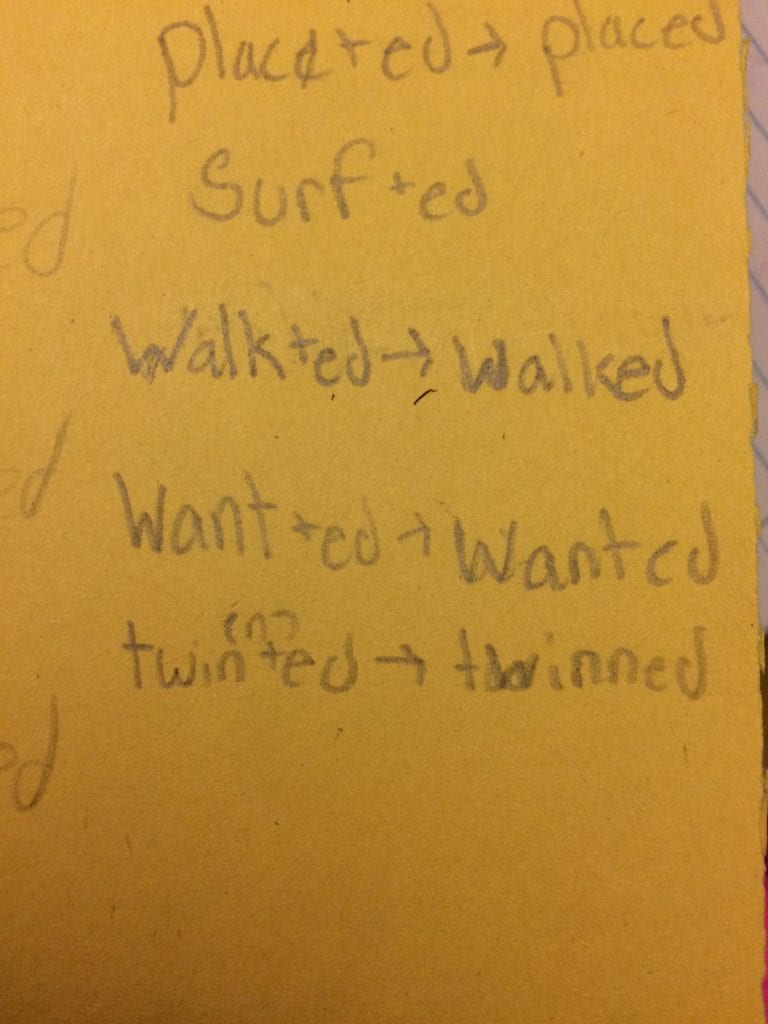 place + ed → placed
Surf + ed
ed
Walk + ed → Walked
ed
Want + ed → Wanted
(n)
twin + ed → twinned
ed